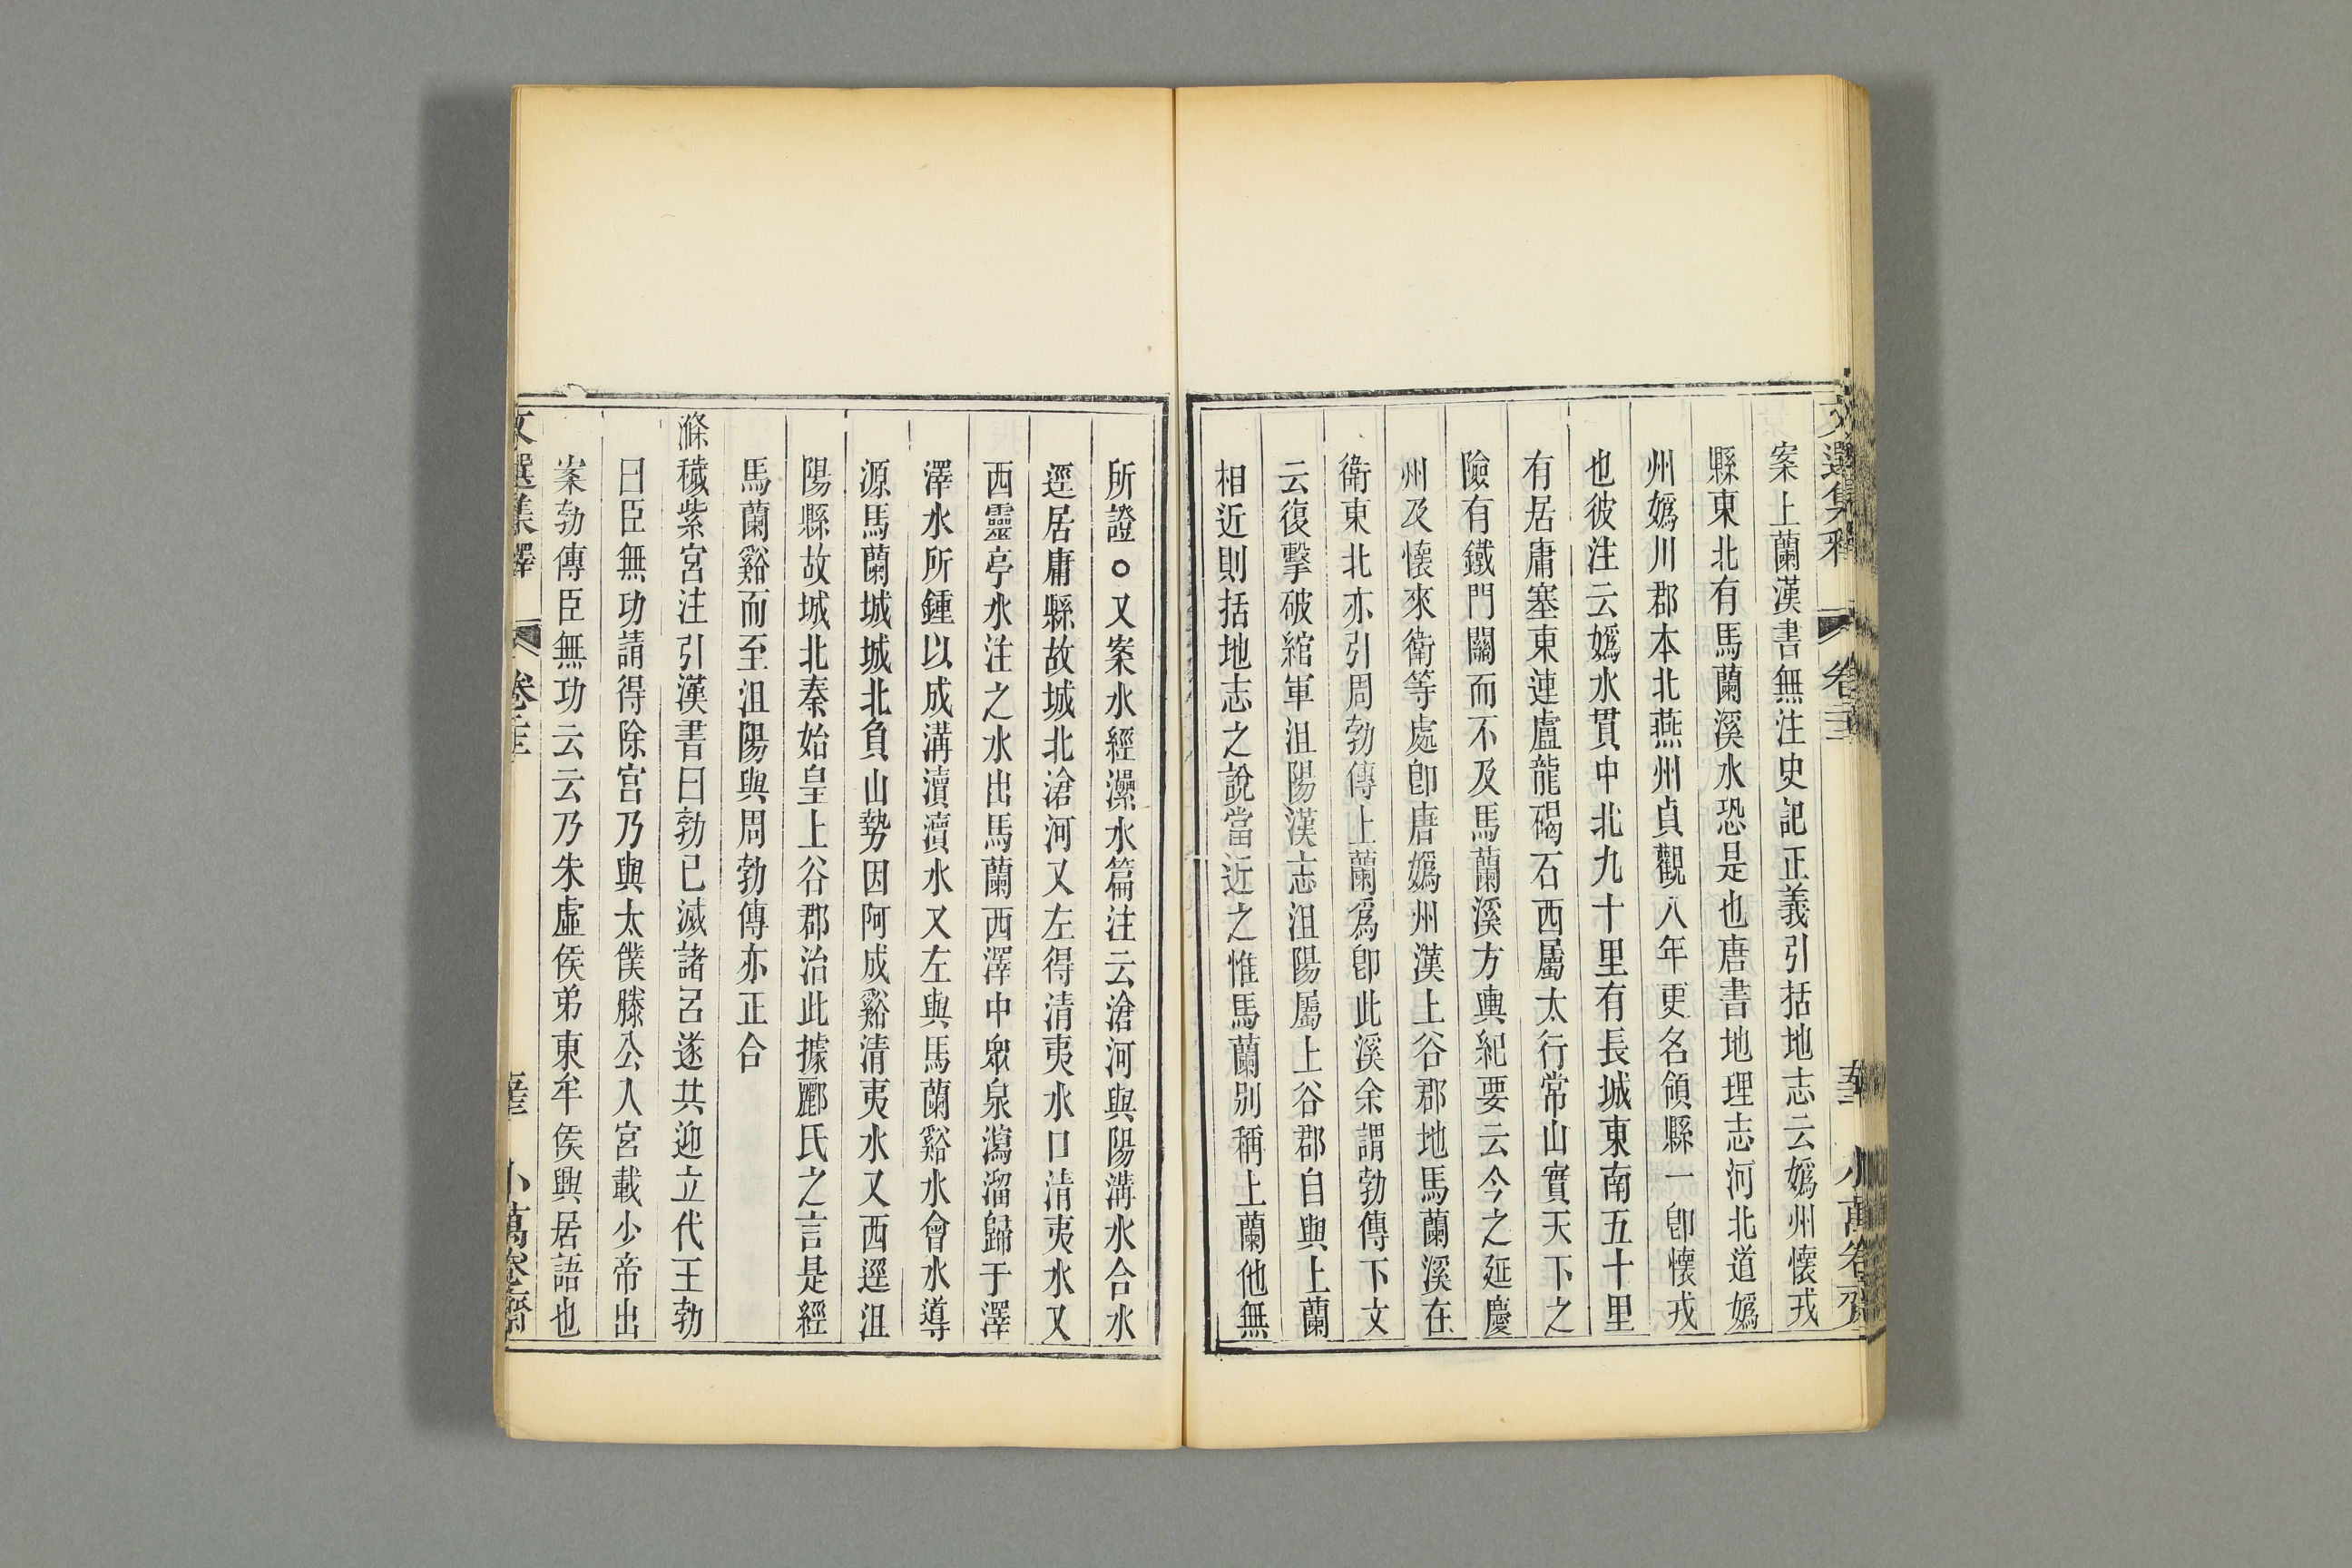 案上蘭漢書無注史記正義引括地志云嬀州懷戎
縣東北有馬蘭溪水恐是也唐書地理志河北道嬀
州嬀川郡本北燕州貞觀八年更名領縣一卽懷戎
也彼注云嬀水貫中北九十里有長城東南五十里
有居庸塞東連盧龍碣石西屬太行常山實天下之
險有鐵門關而不及馬蘭溪方輿紀要云今之延慶
州及懷來衛等處卽唐嬀州漢上谷郡地馬蘭溪在
衛東北亦引周勃傳上蘭爲卽此溪余謂勃傳下文
云復擊破綰軍沮陽漢志沮陽屬上谷郡自與上蘭
相近則括地志之說當近之惟馬蘭別稱上蘭他無
所證○又案水經㶟水篇注云滄河與陽溝水合水
逕居庸縣故城北滄河又左得清夷水口清夷水又
西靈亭水注之水出馬蘭西澤中衆泉瀉溜歸于澤
澤水所鍾以成溝瀆瀆水又左與馬蘭谿水會水導
源馬蘭城城北負山勢因阿成谿清夷水又西逕沮
陽縣故城北秦始皇上谷郡治此據酈氏之言是經
馬蘭谿而至沮陽與周勃傳亦正合
滌穢紫宮注引漢書曰勃已滅諸呂遂共迎立代王勃
曰臣無功請得除宮乃與太僕滕公入宮載少帝出
案勃傳臣無功云云乃朱虛侯弟東牟侯興居語也
文選集釋 卷 小萬卷齋